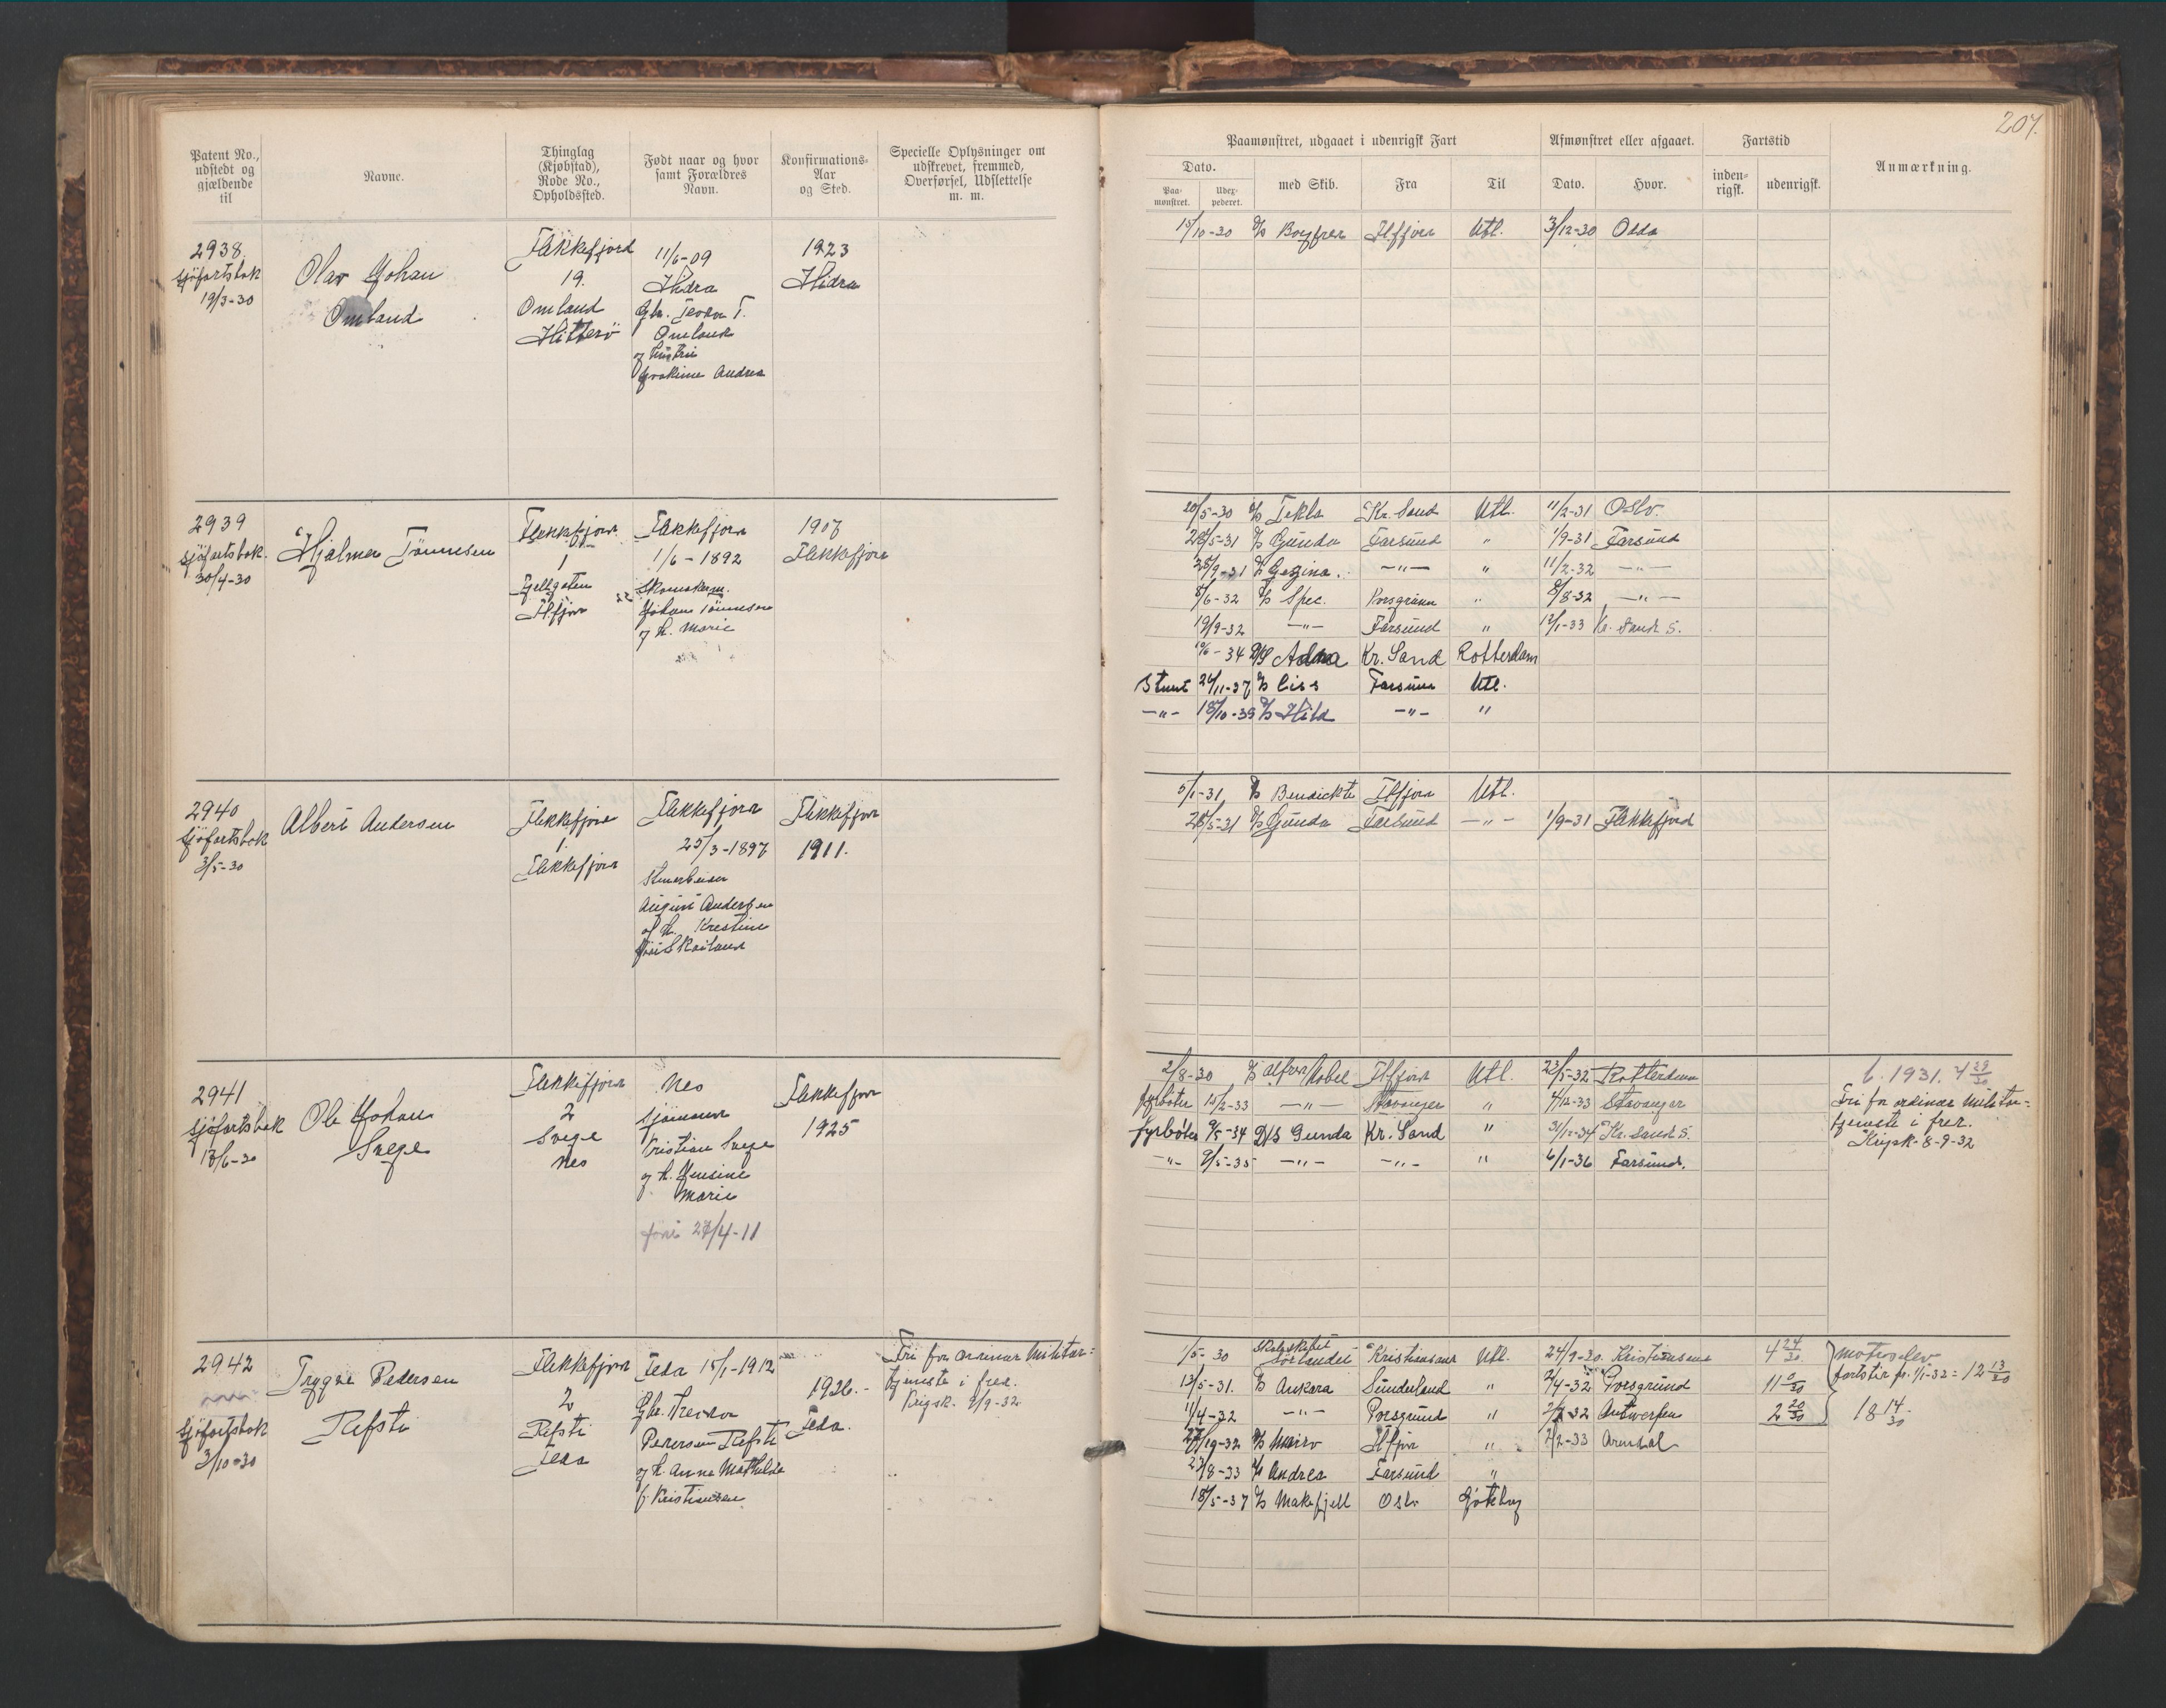 Patent No., udstedt og gjældende til
Navne.
Thinglag (Kjøbstad), Rode No., Opholdssted.
Født naar og hvor samt Forældres Navn.
Konfirmations-Aar og Sted.
Specielle Oplysninger om udskrevet, fremmed, Overførsel, Udslettelse m. m.
2938.
Sjøfartsbok
19/3-30
Olav Johan
Omland
Flekkefjord
19.
Omland
Hitterö
11/6-09
Hidra
Omland
og hustru
Jorakime Andrea
1923
Hidra
2939
Sjøfartsbok.
30/4-30
Hjalmer Tönnesen
Flekkefjord
1
Fjellgaten
Flfjord
Flekkefjord
1/6-1892
Skomakerm.
Johan Tönnesen
og h. Marie
1907
Flekkefjord
2940
Sjøfartsbok
3/5-30
Albert Andersen
Flekkefjord
1.
Flekkefjord
Flekkefjord
25/3-1897
August Andersen
og h. Kristine
Flekkefjord
1911.
2941
Sjøfartsbok
18/6-30
Ole Johan
Svege
Flekkefjord
2
Svege
Nes
Nes
Sjömann
Kristian Svege
og h. Jensine
Marie
født 27/4-11
Flekkefjord
1925
2942
Sjöfartsbok
3/10-30
Trygve Pedersen
Refsti
Flekkefjord
2
Refsti
Feda
Feda 15/1-1912
Gbr.
Pedersen Refsti
og h. Anna Mathilde
f. Kristiansen
1926.-
Feda.
Fri for ordinær militær-
tjeneste i fred.
Krigsk. 8/9-32
207.
Paamønstret, udgaaet i udenrigsk Fart
Afmønstret eller afgaaet.
Fartstid
Anmærkning.
Dato.
Paamønstret.
Udexpederet.
med Skib.
Fra
Til
Dato.
Hvor.
indenrigsk.
udenrigsk.
15/10-30 D/S Borgfred Flfjord Utl. 3/12-30
20/5-30 D/S Tekla Kr. Sand Utl. 11/2-31 Oslo.
28/5-31 D/S Gunda Farsund " 1/9-31 Farsund
25/9-31 D/S Gezina. -"- " 11/2-32 -"-
8/6-32 D/S Spec. Porsgrunn " 8/8-32 -"-
19/9-32 -"- Farsund " 12/1-33 Kr. Sand S.
-34 D/S Kr. Sand Rotterdam
Stuert 24/11-37 D/S Liss Farsund Utl.
-"- 18/10-39 D/S Hild -"- "
5/1-31 D/S Bendickte Flfjord Utl.
28/5-31 D/S Gunda Farsund -"- 1/9-31 Flekkefjord
2/8-30 D/S Alfred Nobel Flfjord Utl. 23/5-32 Rotterdam
fyrböter 15/2-33 -"- Stavanger " 4/12-33 Stavanger
fyrböter 9/5-34 D/S Gunda Kr. Sand " 31/12-34 Kr. Sand S.
-"- 9/5-35 -"- -"- " 6/1-36 Farsund.
6. 1931. 4 29/30
Fri for ordinær militær-
tjeneste i fred.
Krigsk. 8-9-32
1/5-30 Skoleskibet Sörlandet Kristiansand Utl. 24/9-30. Kristiansand 4 24/30
13/5-31. D/S Ankara Sunderland " 2/4-32 Porsgrund 11 0/30
11/4-32 -"- Porsgrund " 2/7-32 Antwerpen 2 20/30
-32 Flfjord " 2/2-33 Arendal
23/8-33 D/S Andrea Farsund "
18/5-37 D/S Makefjell Oslo Göteborg
matroselev
fartstid pr. 1/1-32 = 12 13/30
18 14/30